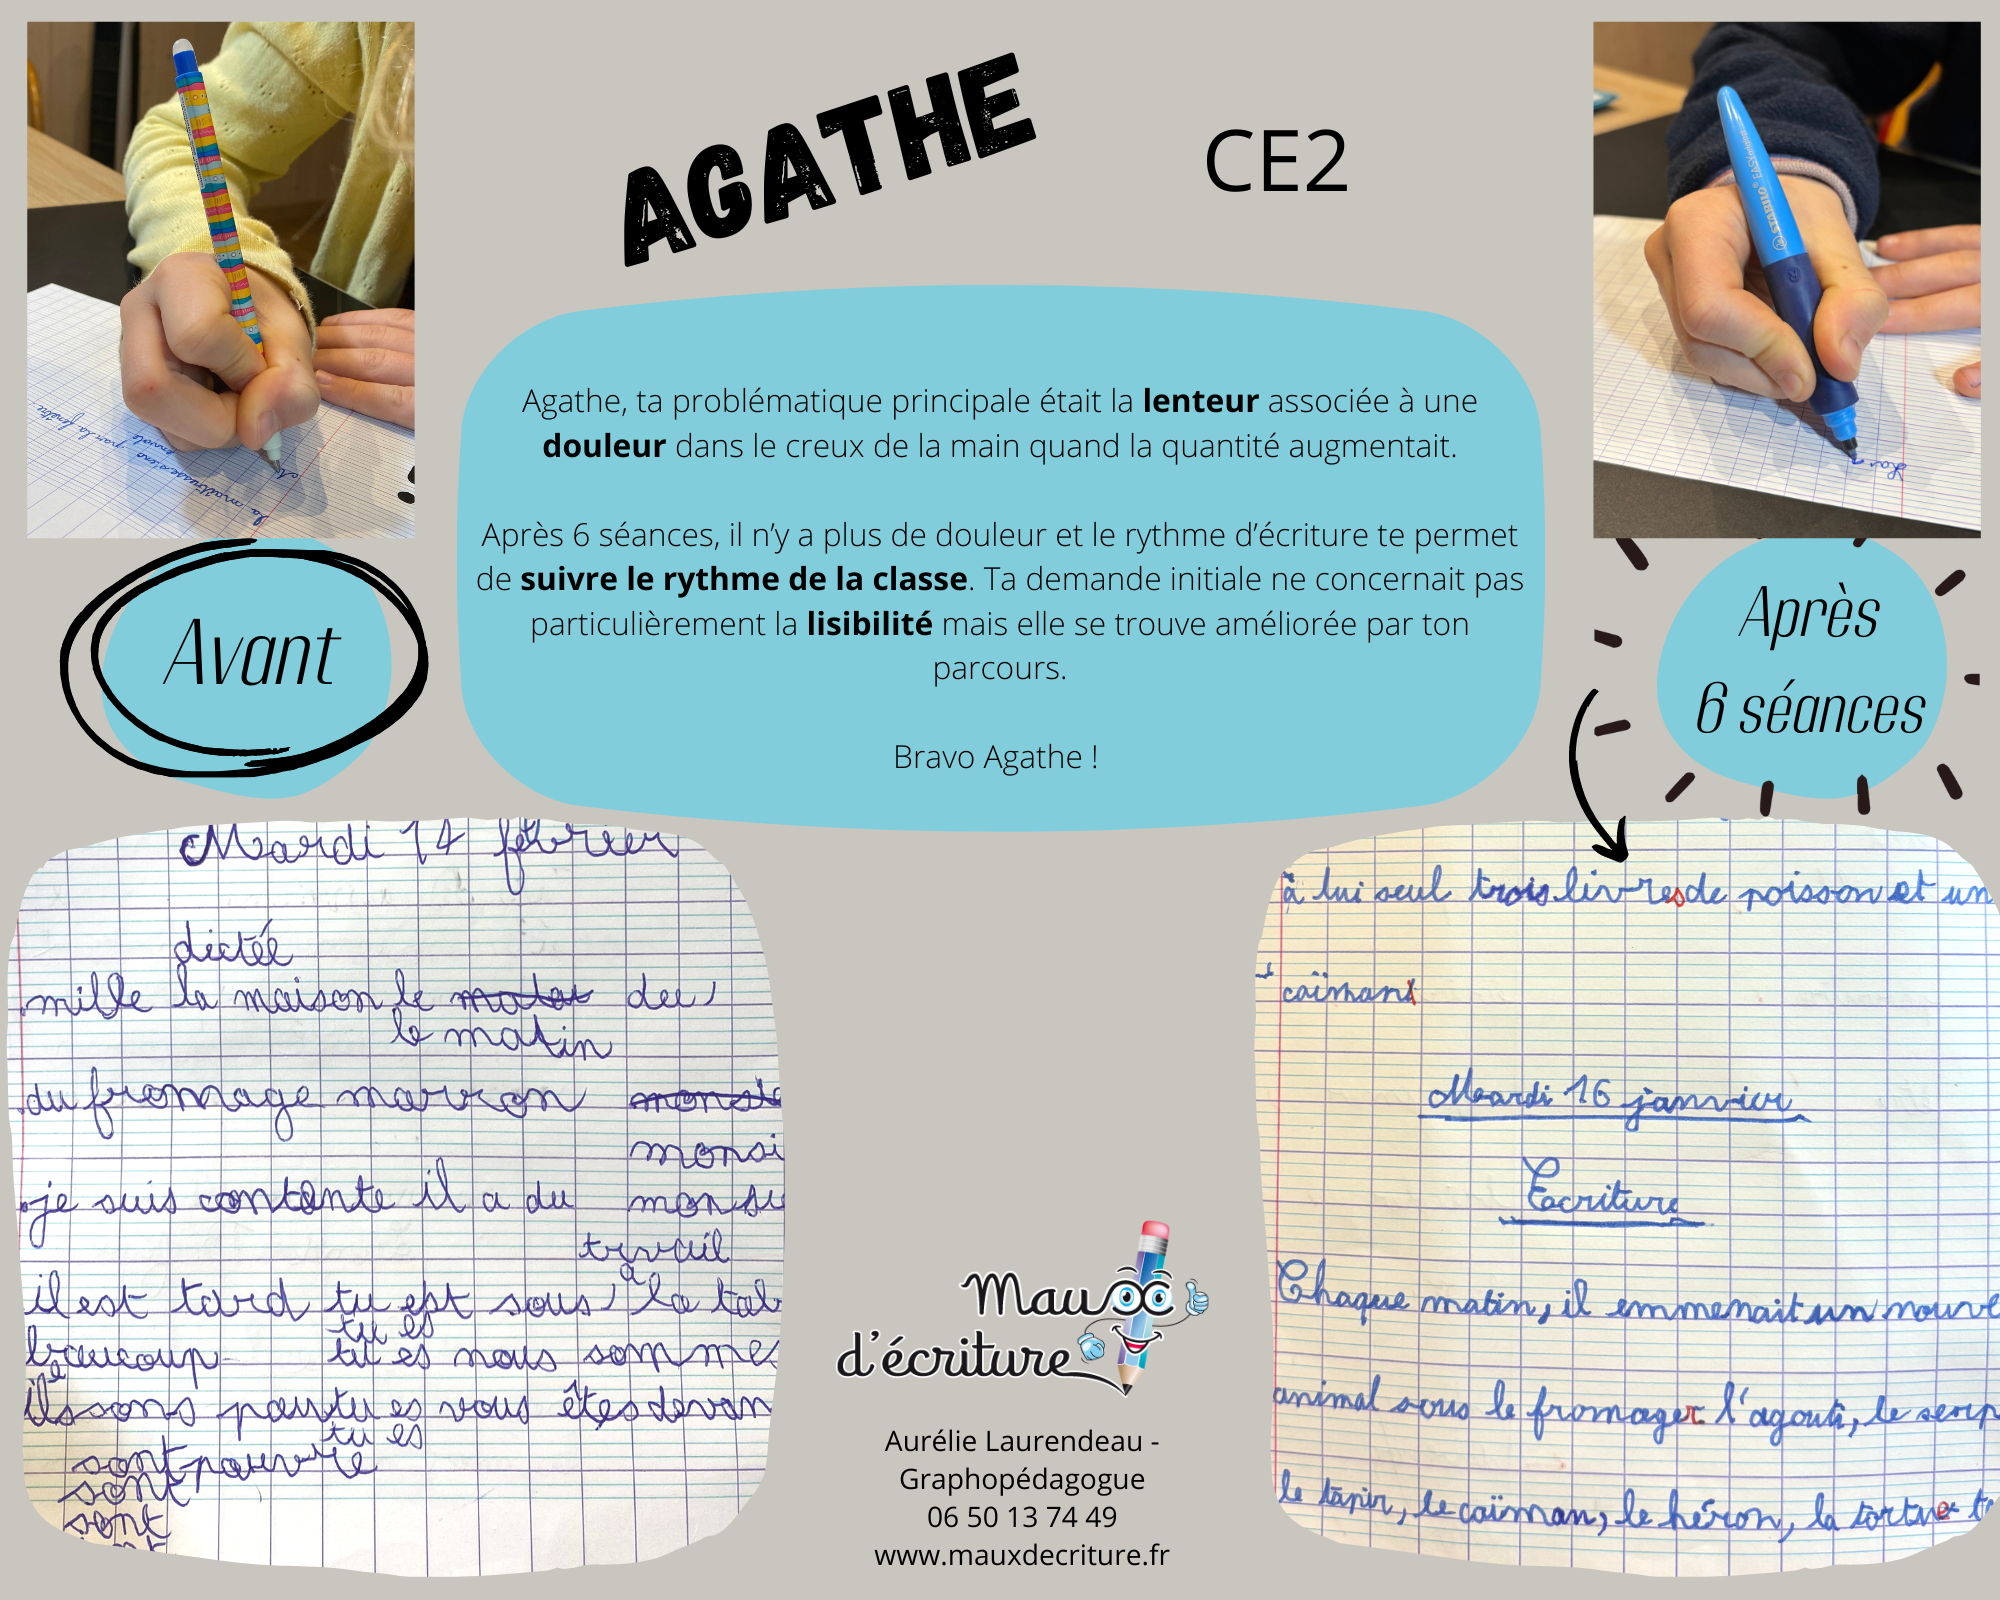 AGATHE
CE2
STABILO® EASYoriginal
Agathe, ta problématique principale était la lenteur associée à une
douleur dans le creux de la main quand la quantité augmentait.
Après 6 séances, il n’y a plus de douleur et le rythme d’écriture te permet
de suivre le rythme de la classe. Ta demande initiale ne concernait pas
particulièrement la lisibilité mais elle se trouve améliorée par ton
parcours.
Bravo Agathe !
Avant
Après
6 séances
Mardi 14 février
dictée
mille la maison le du
le matin
du fromage marron
monsi
je suis contente il a du
travail
il est tard tu est sous la tab
à
tu es
beaucoup tu es nous sommes
ils sons pau tu es vous êtes devan
tu es
sont pauvre
sont
sont
à lui seul trois livres de poisson et un
caïmant
Mardi 16 janvier
Ecriture
Chaque matin, il emmenait un nouve
animal sous le fromager l'agouti, le serp
le tapir, le caïman, le héron, la tortue
Maux
d'écriture
Aurélie Laurendeau -
Graphopédagogue
06 50 13 74 49
www.mauxdecriture.fr